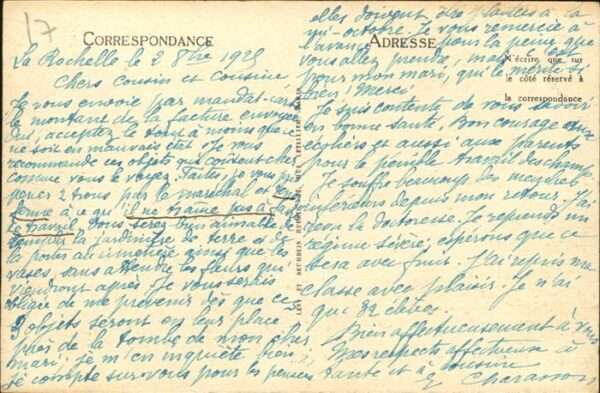 17
CORRESPONDANCE
La Rochelle le 2 8bre 1925
Chers Cousin et Cousine
Je vous envoie par mandat-carte
le montant de la facture envoyée
acceptez le tout à moins que
ne soit en mauvais état. Je vous
recommande ces objets qui coûtent cher
comme vous le voyez. Faites, je vous prie
2 trous par le maréchal et
à ce qu'il ne traîne pas à
le travail. Vous serez bien aimable de
la jardinière de terre et de
la porter au cimetière ainsi que les
vases, sans attendre les fleurs qui
viendront après. Je vous serais
obligée de me prévenir dès que ces
3 objets seront en leur place
près de la tombe de mon cher
mari. Je m'en inquiète bien
je compte sur vous pour les pensées
elles doivent être plantées à la
mi-octobre. Je vous remercie à
l'avance pour la peine que
vous allez prendre, mais c'est
pour mon mari, qui le mérite si
bien! Merci
ADRESSE
N'écrire que sur
le côté réservé à
la correspondance
Je suis contente de vous savoir
en bonne santé. Bon courage aux
écoliers et aussi aux parents
pour le pénible travail des champs.
Je souffre beaucoup des membres
inférieurs depuis mon retour. J'ai
la doctoresse. Je reprends un
régime sévère; espérons que ce
sera avec fruit. J'ai repris ma
classe avec plaisir. Je n'ai
que 32 élèves.
Bien affectueusement à vous
Mes respects affectueux à
tante et à cousine
E Charasson